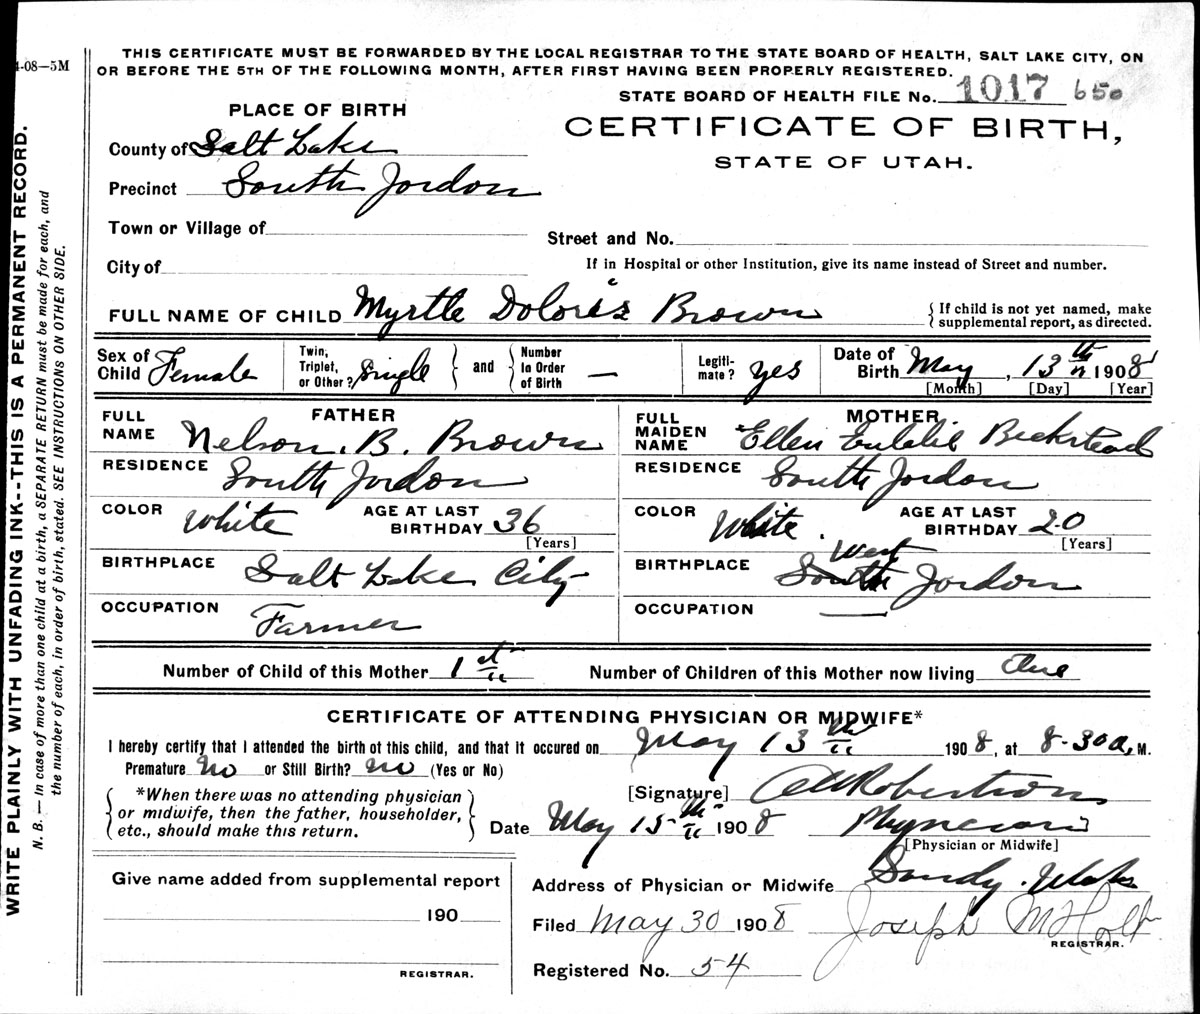 4-08—5M
THIS CERTIFICATE MUST BE FORWARDED BY THE LOCAL REGISTRAR TO THE STATE BOARD OF HEALTH, SALT LAKE CITY, ON
OR BEFORE THE 5TH OF THE FOLLOWING MONTH, AFTER FIRST HAVING BEEN PROPERLY REGISTERED.
STATE BOARD OF HEALTH FILE No. 1017 650
PLACE OF BIRTH
CERTIFICATE OF BIRTH,
STATE OF UTAH.
County of Salt Lake
Precinct South Jordon
Town or Village of
Street and No.
City of
If in Hospital or other Institution, give its name instead of Street and number.
FULL NAME OF CHILD Myrtle Dolores Brown
{If child is not yet named, make
supplemental report, as directed.
Sex of Child Female
Twin, Triplet, or Other? Single
and
Number In Order of Birth —
Legiti-mate? yes
Date of Birth May, 13th 1908
[Month] [Day] [Year]
FATHER
FULL NAME Nelson. B. Brown
RESIDENCE South Jordon
COLOR White AGE AT LAST BIRTHDAY 36
[Years]
BIRTHPLACE Salt Lake City
OCCUPATION Farmer
MOTHER
FULL MAIDEN NAME Ellen Eulalie Beckstead
RESIDENCE South Jordon
COLOR White. AGE AT LAST BIRTHDAY 20
[Years]
BIRTHPLACE South West Jordon
OCCUPATION —
Number of Child of this Mother 1st
Number of Children of this Mother now living One
CERTIFICATE OF ATTENDING PHYSICIAN OR MIDWIFE*
I hereby certify that I attended the birth of this child, and that it occured on May 13th 1908, at 8-30 a, M.
Premature No or Still Birth? No (Yes or No)
*When there was no attending physician
or midwife, then the father, householder,
etc., should make this return.
[Signature] Robertson
Date May 15th 1908 Physician
[Physician or Midwife]
Address of Physician or Midwife Sandy. Utah
Filed May 30 1908 Joseph M Holt
REGISTRAR.
Registered No. 54
Give name added from supplemental report
190
REGISTRAR.
WRITE PLAINLY WITH UNFADING INK--THIS IS A PERMANENT RECORD.
N. B. — In case of more than one child at a birth, a SEPARATE RETURN must be made for each, and
the number of each, in order of birth, stated. SEE INSTRUCTIONS ON OTHER SIDE.